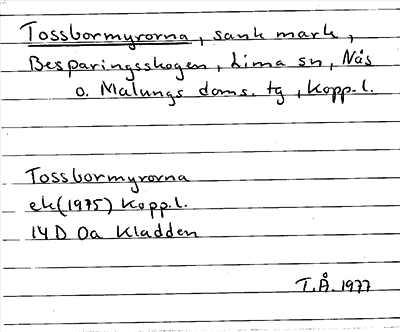 Tossbormyrorna, sank mark,
Besparingsskogen, Lima sn, Nås
o. Malungs doms. tg, Kopp.l.
Tossbormyrorna
ek(1975) Kopp.l.
14D 0a Kladden
T.Å. 1977